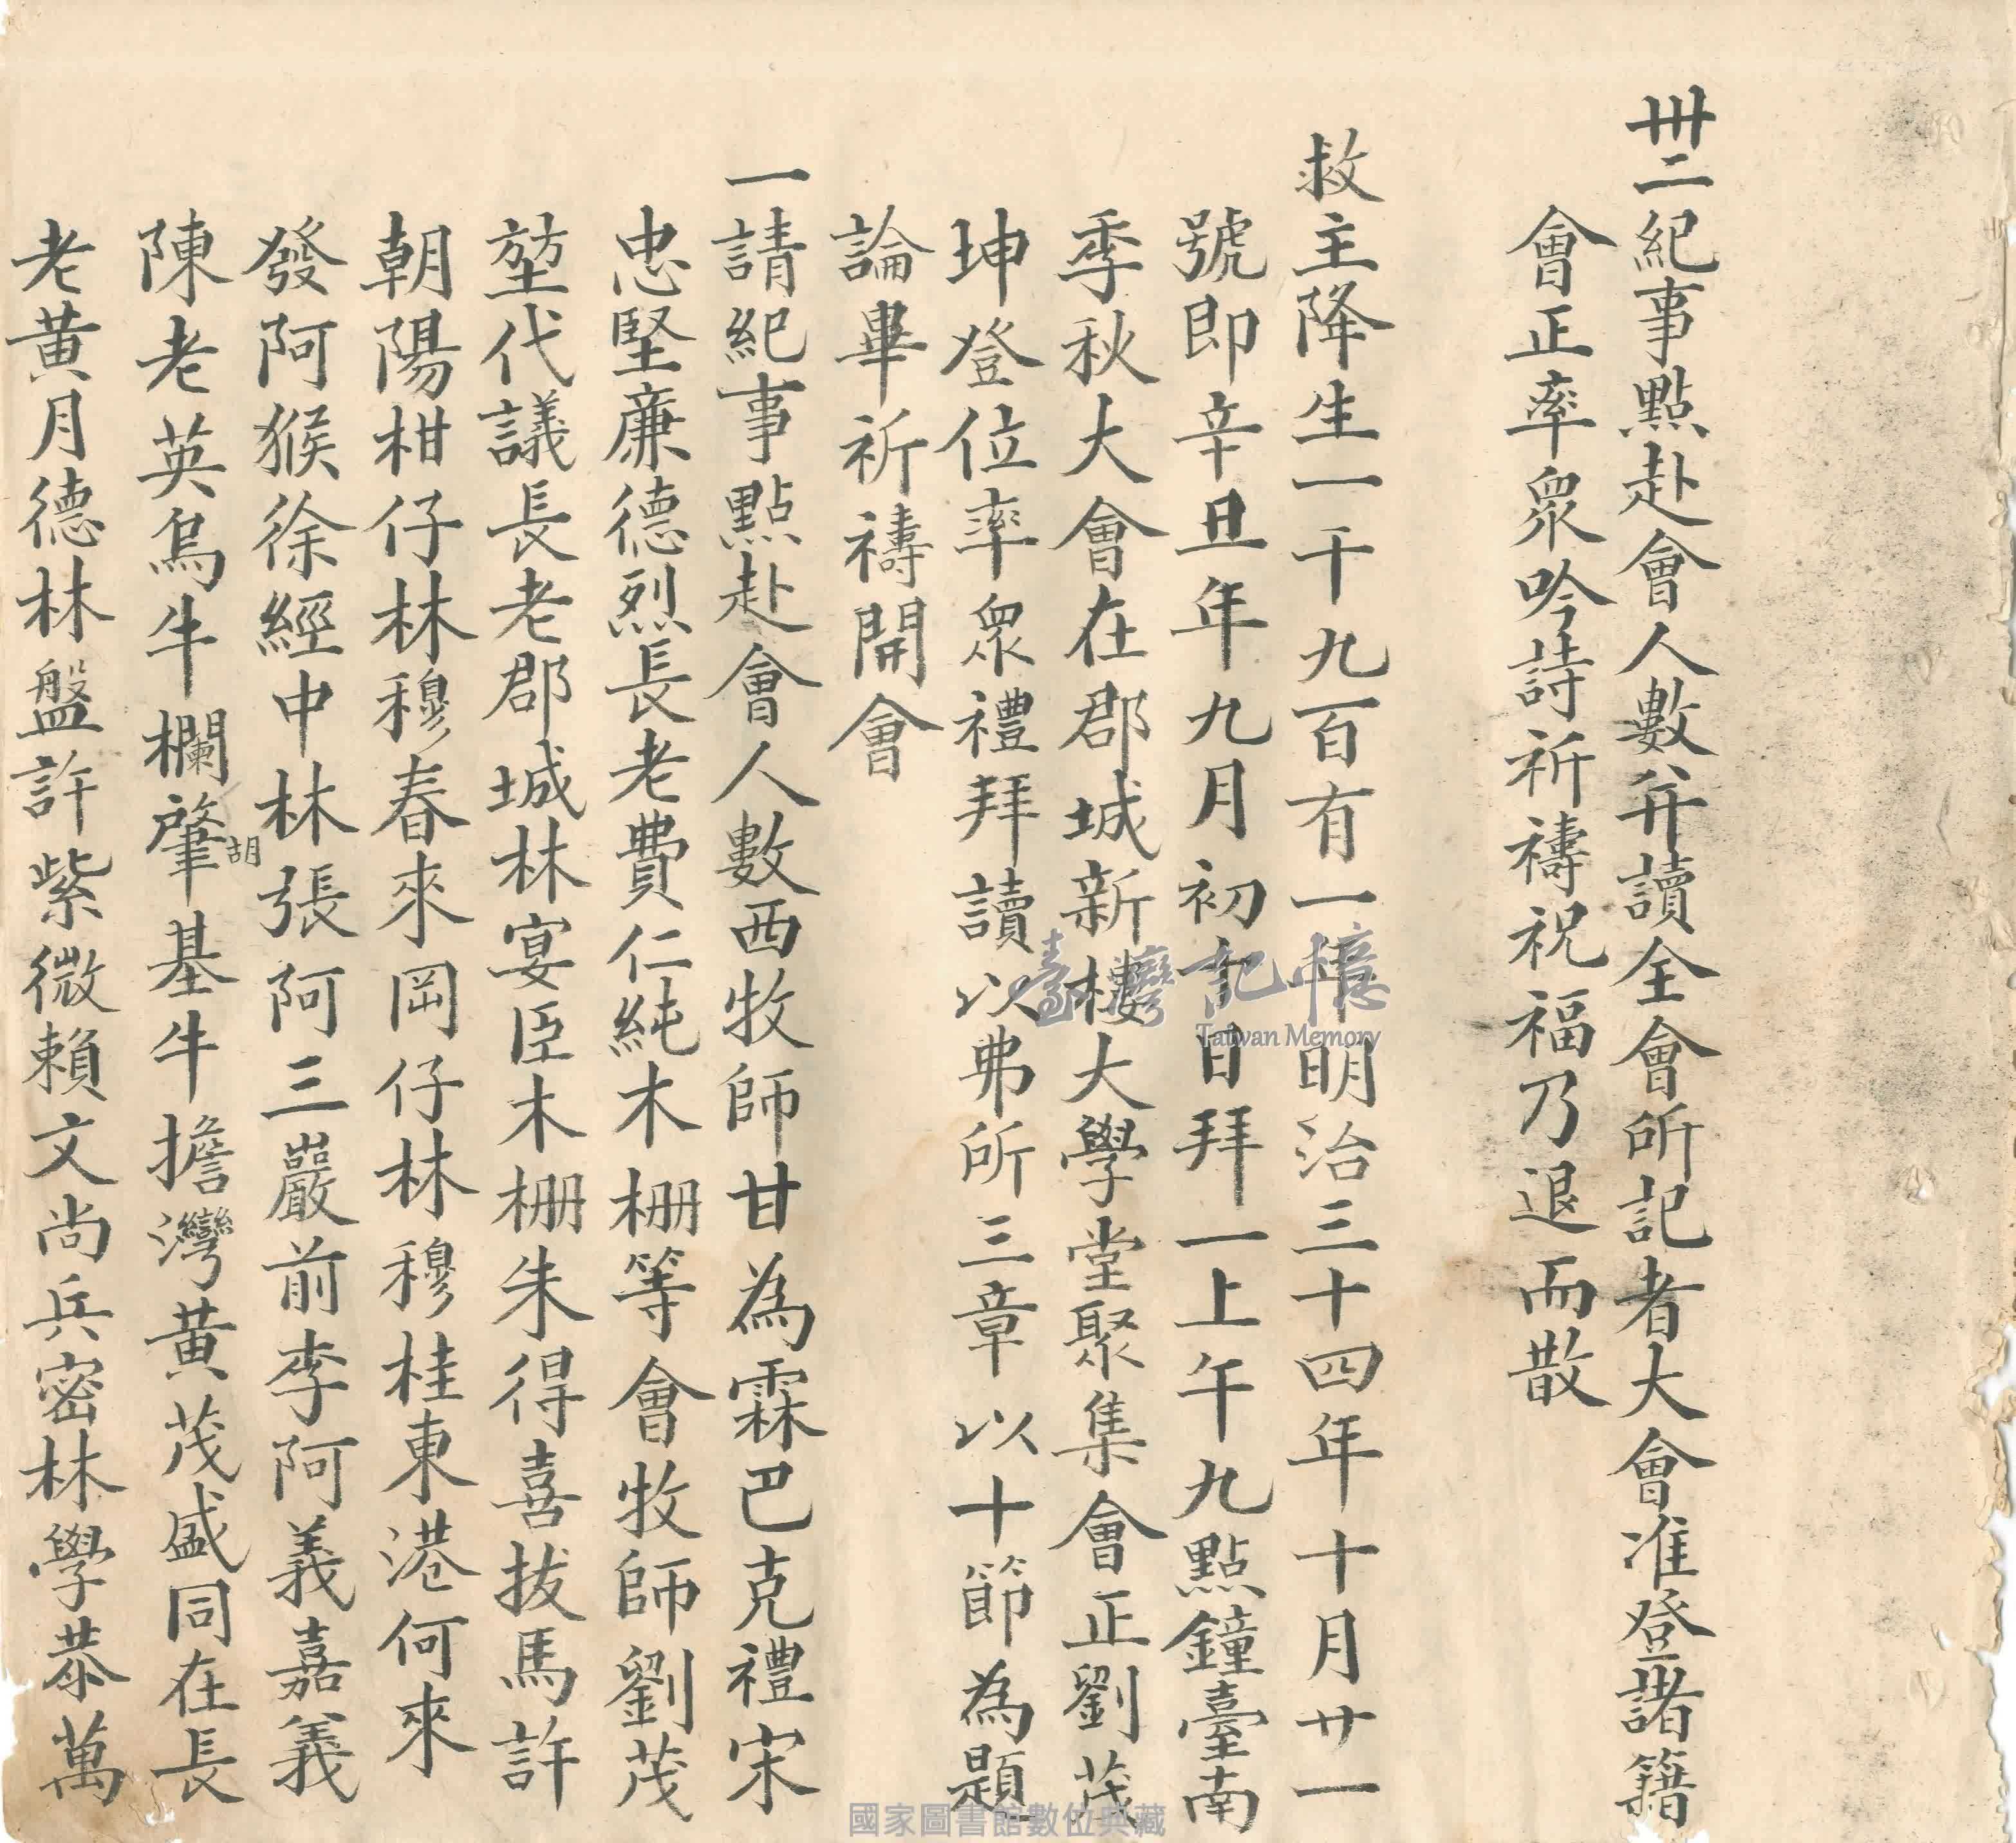 卌二紀事點赴會人數并讀全會所記者大會准登諸籍
會正率眾吟詩祈禱祝福乃退而散
救主降生一千九百有一年明治三十四年十月廿一
號即辛丑年九月初十日拜一上午九點鐘臺南
季秋大會在郡城新樓大學堂聚集會正劉茂
坤登位率眾禮拜讀以弗所三章以十節為題
論畢祈禱開會
一請紀事點赴會人數西牧師甘為霖巴克禮宋
忠堅廉德烈長老費仁純木柵等會牧師劉茂
堃代議長老郡城林宴臣木柵朱得喜拔馬許
朝陽柑仔林穆春來岡仔林穆桂東港何來
發阿猴徐經中林張阿三巖前李阿義嘉義
陳老英烏牛欄胡肇基牛擔灣黃茂盛同在長
老黃月德林盤許紫微賴文尚兵密林學恭萬
臺灣記憶
Taiwan Memory
國家圖書館數位典藏